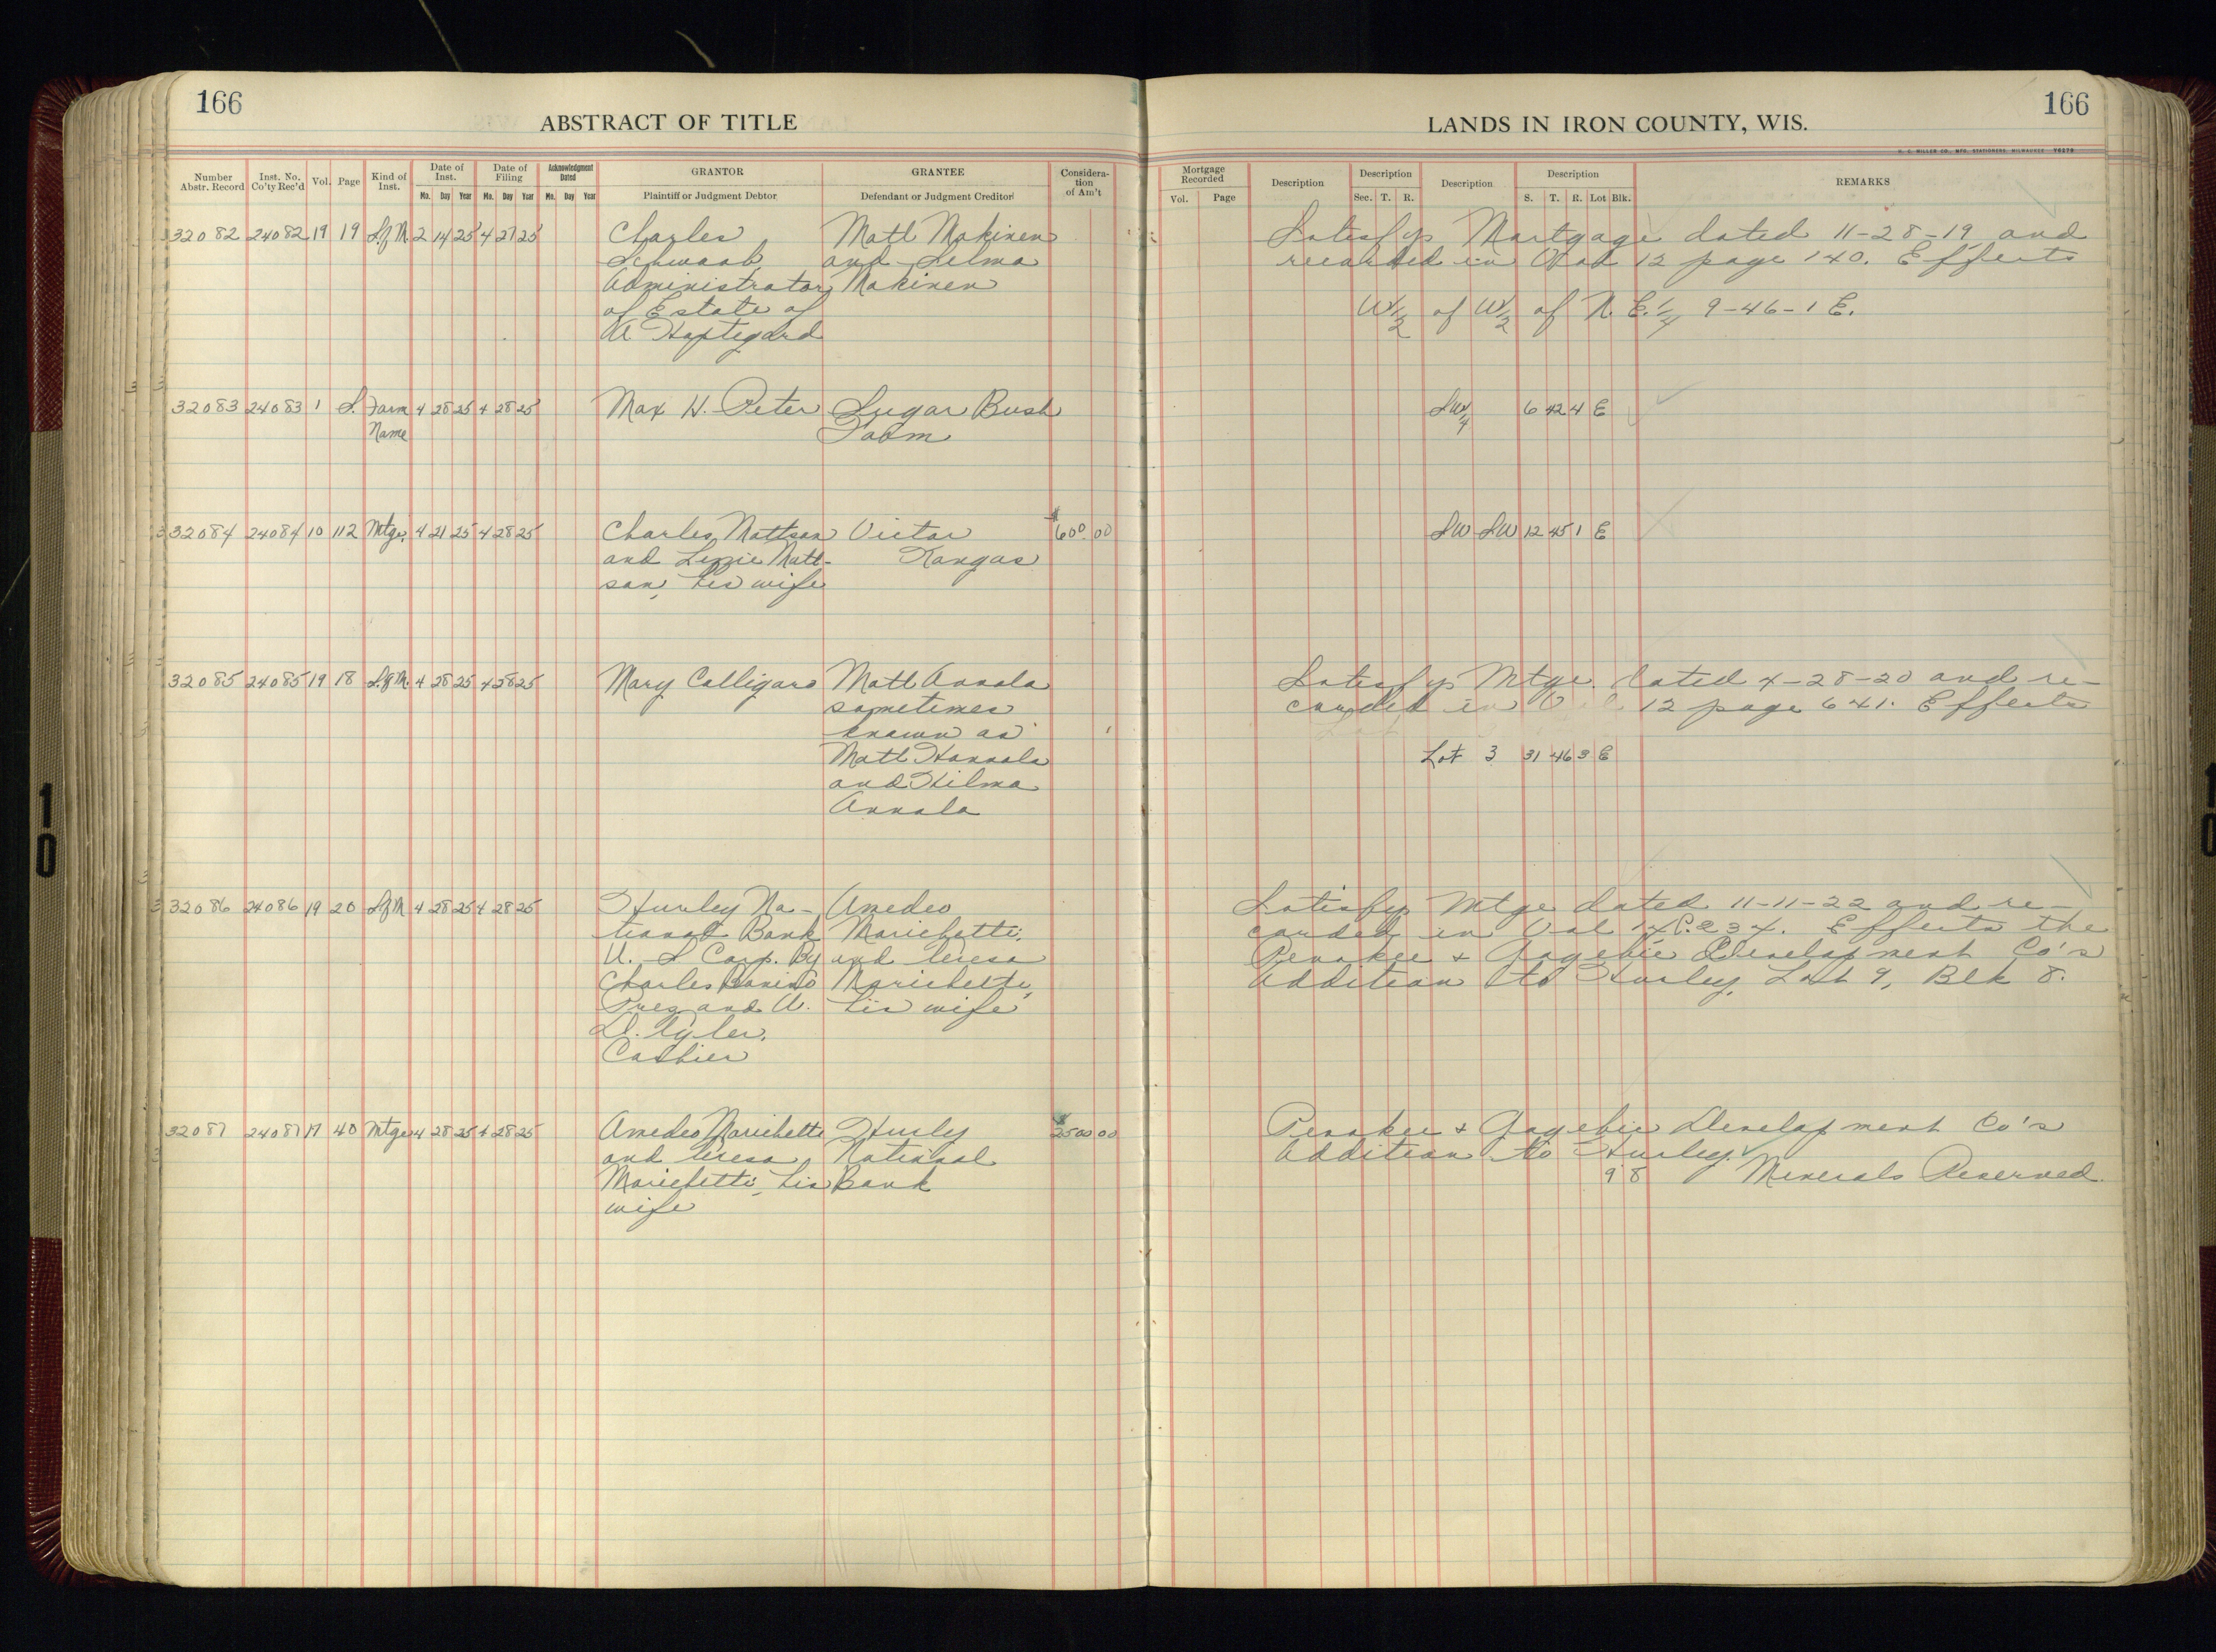 166
ABSTRACT OF TITLE
LANDS IN IRON COUNTY, WIS.
166
H. C. MILLER CO., MFG. STATIONERS, MILWAUKEE
Number Abstr. Record | Inst. No. Co'ty Rec'd | Vol. | Page | Kind of Inst. | Date of Inst. Mo. Day Year | Date of Filing Mo. Day Year | Acknowledgment Dated Mo. Day Year | GRANTOR Plaintiff or Judgment Debtor | GRANTEE Defendant or Judgment Creditor | Consideration of Am't
Mortgage Recorded Vol. Page | Description | Description Sec. T. R. | Description | Description S. T. R. Lot Blk. | REMARKS
32082 24082 19 19 S.of M. 2 14 25 4 27 25 Charles Matt Makinen Satisfys Mortgage dated 11-28-19 and
Schwaab and Selma recorded in Vol 12 page 140. Effects
Administrator Makinen
of Estate of W½ of W½ of N.E.¼ 9-46-1 E.
A.
32083 24083 1 S. Farm 4 28 25 4 28 25 Max H. Peter Sugar Bush SW¼ 6 42 4 E
Name Farm
32084 24084 10 112 Mtge. 4 21 25 4 28 25 Charles Mattson Victor $600 00 SW SW 12 45 1 E
and Lizzie Matt- Kangas
son, his wife
32085 24085 19 18 S.of M. 4 28 25 4 28 25 Mary Calligaro Matt Annala Satisfys Mtge. dated 4-28-20 and re-
sometimes corded in Vol 12 page 641. Effects
known as
Matt Hannala Lot 3 31 46 3 E
and Hilma
Annala
32086 24086 19 20 S of M 4 28 25 4 28 25 Hurley Na- Amedeo Satisfys Mtge dated 11-11-22 and re-
tional Bank Marichetti corded in Vol 14 P. 234. Effects the
U. S Corp. By and Teresa Penokee & Gogebic Development Co's
Charles Bonino Marichetti, Addition to Hurley, Lot 9, Blk 8.
Pres and A. his wife
D. Tyler,
Cashier
32087 24087 17 40 Mtge 4 28 25 4 28 25 Amedeo Marichetti Hurly 2500 00 Penokee & Gogebic Development Co's
and Teresa National Addition to Hurley.
Marichetti, his Bank 9 8 Minerals Reserved.
wife
10
10